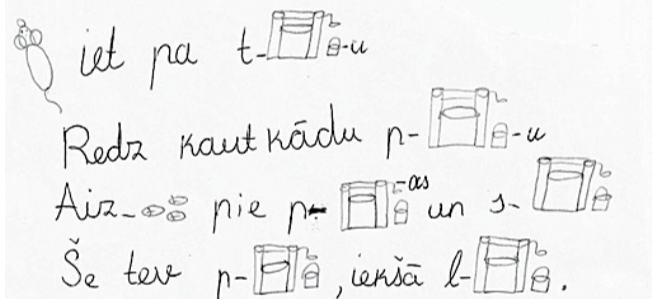 iet pa t- -u
Redz kaut kādu p- -u
Aiz- pie p- -as un s-
Še tev p- , iekšā l- .